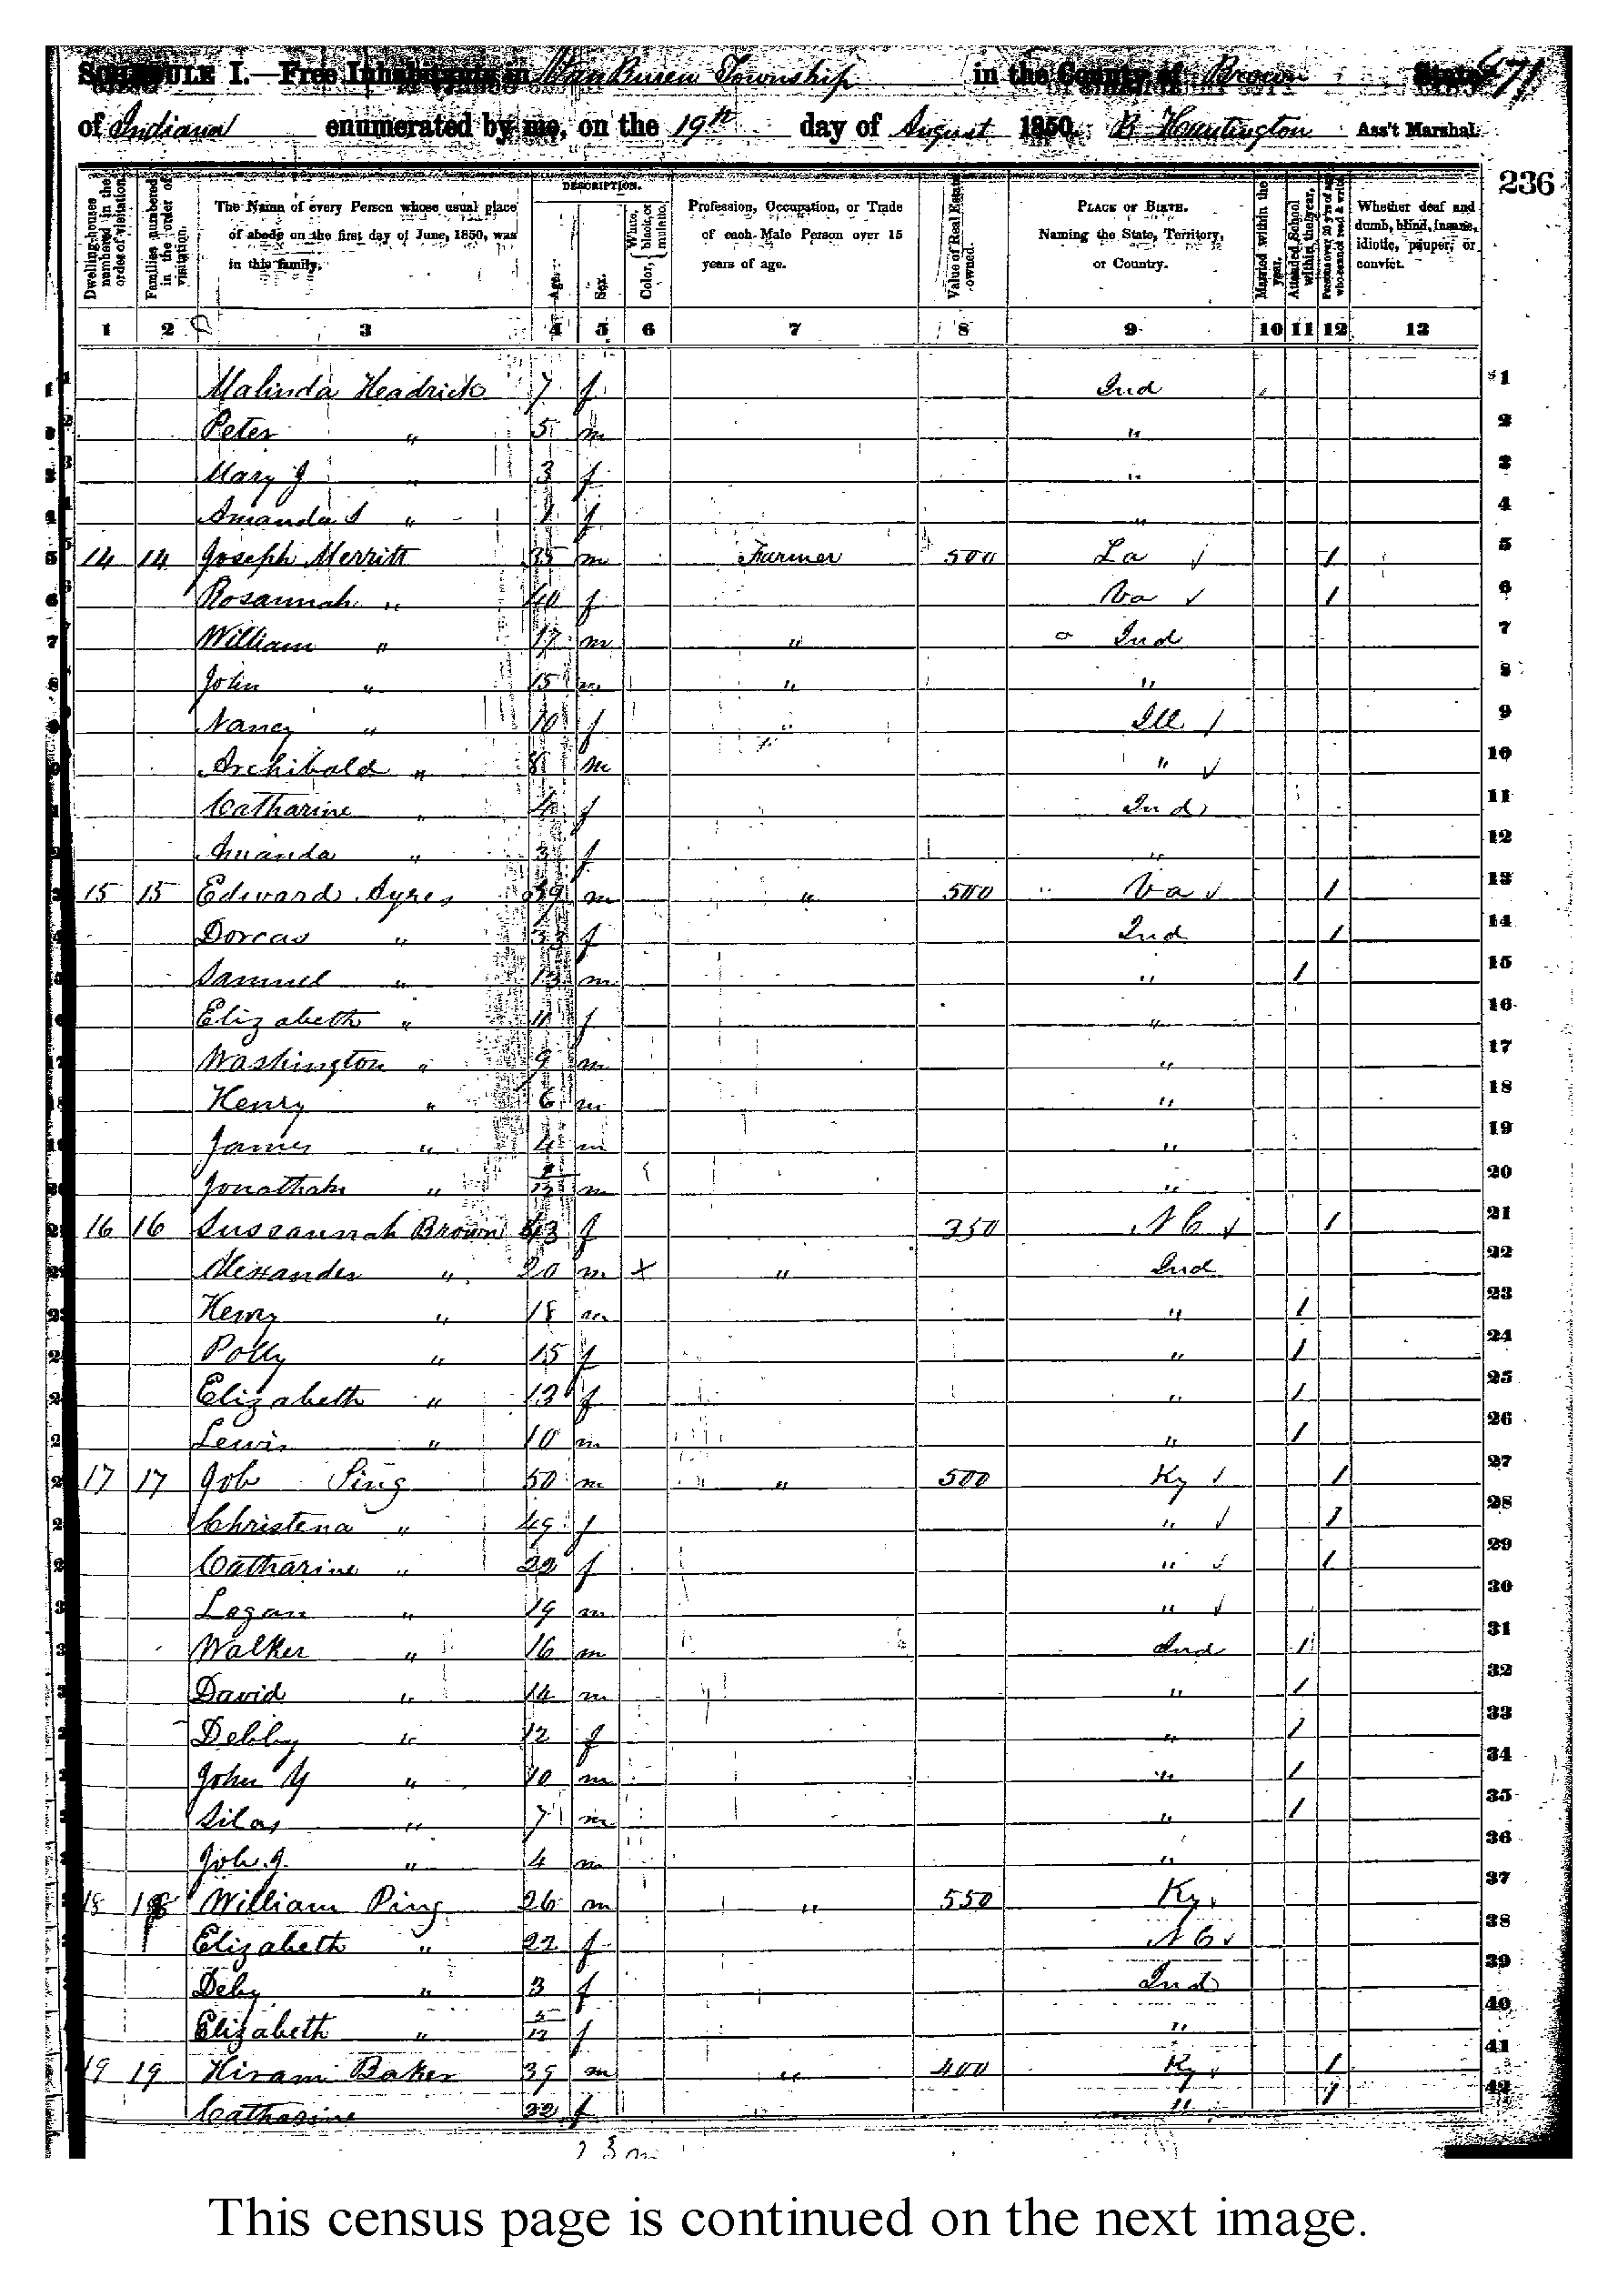 SCHEDULE I.—Free Inhabitants in Van Buren Township in the County of Brown State 471
of Indiana enumerated by me, on the 19th day of August 1850. B Huntington Ass't Marshal.
236
Dwelling-houses numbered in the order of visitation.
Families numbered in the order of visitation.
The Name of every Person whose usual place of abode on the first day of June, 1850, was in this family.
DESCRIPTION.
Age.
Sex.
Color, White, black, or mulatto.
Profession, Occupation, or Trade of each Male Person over 15 years of age.
Value of Real Estate owned.
PLACE OF BIRTH. Naming the State, Territory, or Country.
Married within the year.
Attended School within the year.
Persons over 20 y'rs of age who cannot read & write.
Whether deaf and dumb, blind, insane, idiotic, pauper, or convict.
1 2 3 4 5 6 7 8 9 10 11 12 13
1 Malinda Headrick 7 f Ind 1
Peter " 5 m " 2
Mary J " 3 f " 3
4 Amanda S " 1 f " 4
5 14 14 Joseph Merritt 35 m Farmer 500 La ✓ 1 5
6 Rosannah " 40 f Va ✓ 1 6
7 William " 17 m " Ind 7
8 John " 15 m " " 8
Nancy " 10 f " Ill / 9
Archibald " 8 m " ✓ 10
Catharine " 4 f Ind 11
Amanda " 3 f " 12
15 15 Edward Ayres 39 m " 500 Va ✓ 1 13
Dorcas " 33 f Ind 1 14
Samuel " 13 m " 1 15
Elizabeth " 11 f " 16
Washington " 9 m " 17
Henry " 6 m " 18
James " 4 m " 19
Jonathan " /12 m " 20
16 16 Sussannah Brown 43 f 350 N C ✓ 1 21
Alexander " 20 m + " Ind 22
Henry " 18 m " 1 23
Polly " 15 f " 1 24
Elizabeth " 13 f " 1 25
Lewis " 10 m " 1 26
17 17 Job Ping 50 m " 500 Ky ✓ 1 27
Christena " 49 f " ✓ 1 28
Catharine " 22 f " ✓ 1 29
Logan " 19 m " ✓ 30
Walker " 16 m Ind 1 31
David " 14 m " 1 32
Debby " 12 f " 1 33
John Y " 10 m " 1 34
Silas " 7 m " 1 35
Job J. " 4 m " 36
18 18 William Ping 26 m " 550 Ky 37
Elizabeth " 22 f N C ✓ 38
Deby " 3 f Ind 39
Elizabeth " 5/12 f " 40
19 19 Hiram Baker 39 m " 400 Ky ✓ 1 41
Catharine 32 f " 1 42
This census page is continued on the next image.